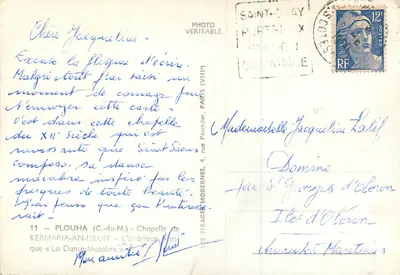 Chère Jacqueline.
Excuse la flegme d'écrire.
Malgré tout j'ai saisi un
moment de courage pour
t'envoyer cette carte.
C'est dans cette chapelle
du XIIe Siècle qui est
ravissante que Saint Saens
composa sa danse
macabre inspiré par les
fresques de toute beauté.
J'ai pensé que ça t'intéresse-
rait!
Mon amitié
PHOTO
VERITABLE
SAINT-QUAY
PORTRIEUX
12F
RF
Mademoiselle Jacqueline
Domino
par St Georges d'Oléron
Ile d'Oléron
Charente Maritime
MODERNES, 4, rue PARIS (VIIIe)
11 - PLOUHA (C.-du-N.) - Chapelle de
KERMARIA-AN-ISKUIT - L'intérieur
que « La Danse Macabre »